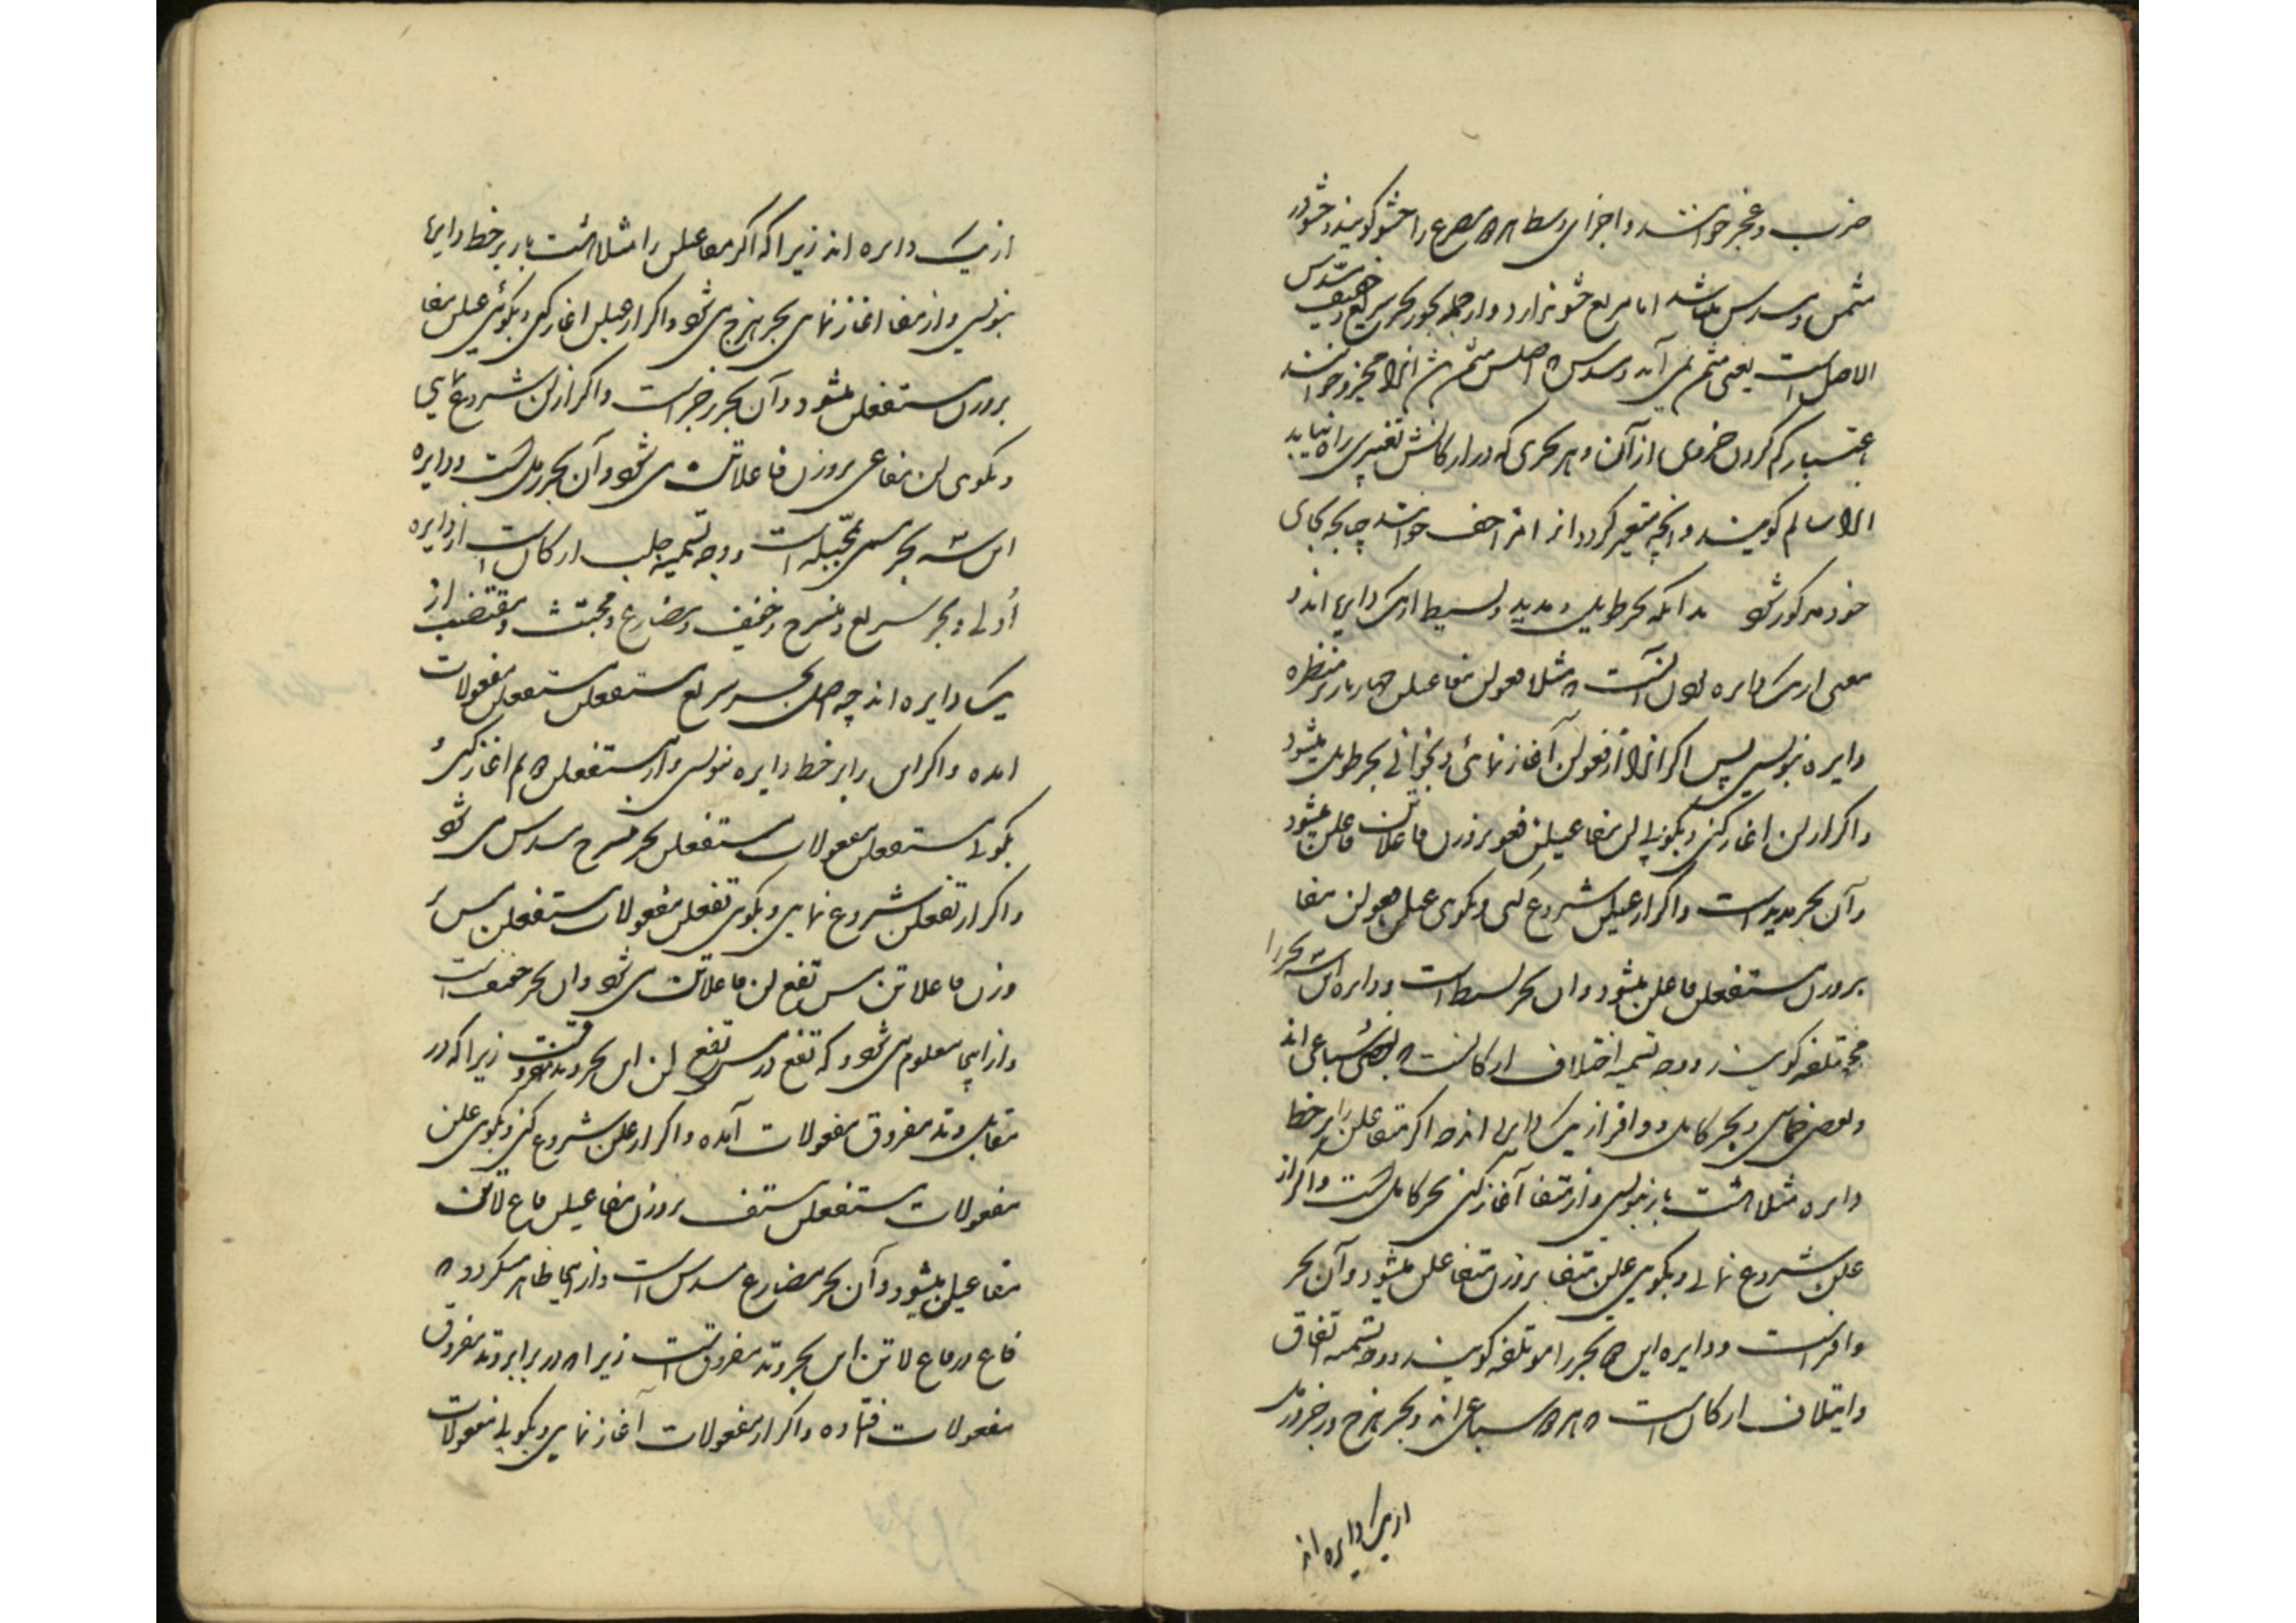 ضرب و عجز خوانند و اجزای وسط هر دو مصرع را حشو گویند و حشو در
مثمن و مسدس میباشد اما مربع حشو ندارد و از جمله بحور بحر سریع و خفیف مسدس
الاصل است یعنی مثمن نمی آید و مسدس که اصلش مثمن باشد آنرا مجزو خوانند
باعتبار کم کردن جزوی از آن و هر بحری که در ارکانش تغییری راه نیابد
آنرا سالم گویند و آنچه متغیر گردد آنرا مزاحف خوانند چنانچه بجای
خود مذکور شود بدانکه بحر طویل و مدید و بسیط از یک دایره اند و
معنی از یک دایره بودن آنست که مثلا فعولن مفاعیلن چهار بار بر منظره
دایره بنویسی پس اگر آنرا از فعولن آغاز نمائی و بخوانی بحر طویل میشود
و اگر از لن آغاز کنی و بگویی لن مفاعیلن فعو بر وزن فاعلاتن فاعلن میشود
و آن بحر مدید است و اگر از عیلن شروع کنی و بگوی عیلن فعولن مفا
بر وزن مستفعلن فاعلن میشود و آن بحر بسیط است و دایره این سه بحر را
مختلفه گویند و وجه تسمیه اختلاف ارکانست که بعضی سباعی اند
و بعضی خماسی و بحر کامل و وافر از یک دایره اند چه اگر متفاعلن را بر خط
دایره مثلا هشت بار بنویسی و از متفا آغاز کنی بحر کامل است و اگر از
علن شروع نمائی و بگویی علن متفا بر وزن مفاعلتن میشود و آن بحر
وافر است و دایره این دو بحر را موتلفه گویند و وجه تسمیه اتفاق
و ایتلاف ارکان است که هر دو سباعی اند و بحر هزج و رجز و رمل
از یک دایره اند
از یک دایره اند زیرا که اگر مفاعیلن را مثلا هشت بار بر خط دایره
بنویسی و از مفا آغاز نمای بحر هزج می شود و اگر از عیلن آغاز کنی و بگوئی عیلن مفا
بر وزن مستفعلن میشود و آن بحر رجز است و اگر از لن شروع نمایی
و بگوی لن مفاعی بر وزن فاعلاتن می شود و آن بحر رمل است و دایره
این سه بحر مسمی بمجتلبه است و وجه تسمیه جلب ارکان است از دایره
اولی و بحر سریع و منسرح و خفیف و مضارع و مجتث و مقتضب از
یک دایره اند چه اصل بحر سریع مستفعلن مستفعلن مفعولات
آمده و اگر این را بر خط دایره بنویسی و از مستفعلن دوم آغاز کنی و
بگوئی مستفعلن مفعولات مستفعلن بحر منسرح مسدس می شود
و اگر از تفعلن شروع نمایی و بگوی تفعلن مفعولات مستفعلن مس بر
وزن فاعلاتن مس تفع لن فاعلاتن می شود و آن بحر خفیف است
و از اینجا معلوم می شود که تفع در مس تفع لن این بحر وتد مفروقست زیرا که در
مقابل وتد مفروق مفعولات آمده و اگر از علن شروع کنی و بگوی علن
مفعولات مستفعلن مستف بر وزن مفاعیلن فاع لاتن
مفاعیلن میشود و آن بحر مضارع مسدس است و از اینجا ظاهر میگردد که
فاع در فاع لاتن این بحر وتد مفروق است زیرا که در برابر وتد مفروق
مفعولات افتاده و اگر از مفعولات آغاز نمایی و بگویی مفعولات